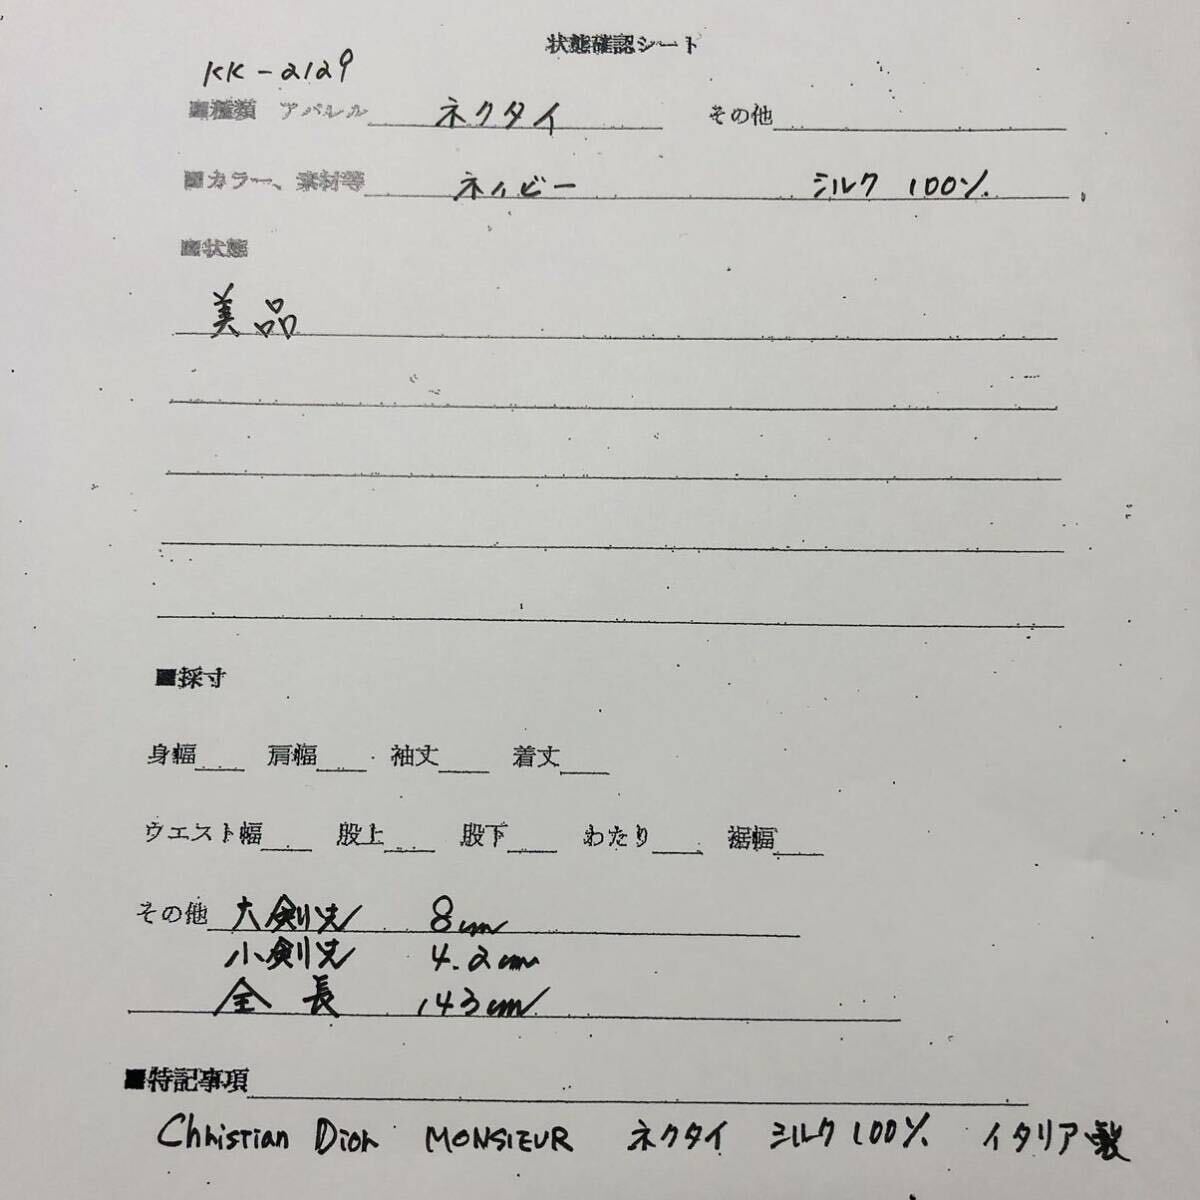 状態確認シート
KK-2129
■種類 アパレル ネクタイ その他
■カラー、素材等 ネイビー シルク 100%
■状態
美品
■採寸
身幅 肩幅 袖丈 着丈
ウエスト幅 股上 股下 わたり 裾幅
その他 大剣先 8cm
小剣先 4.2cm
全長 143cm
■特記事項
Christian Dior MONSIEUR ネクタイ シルク 100% イタリア製